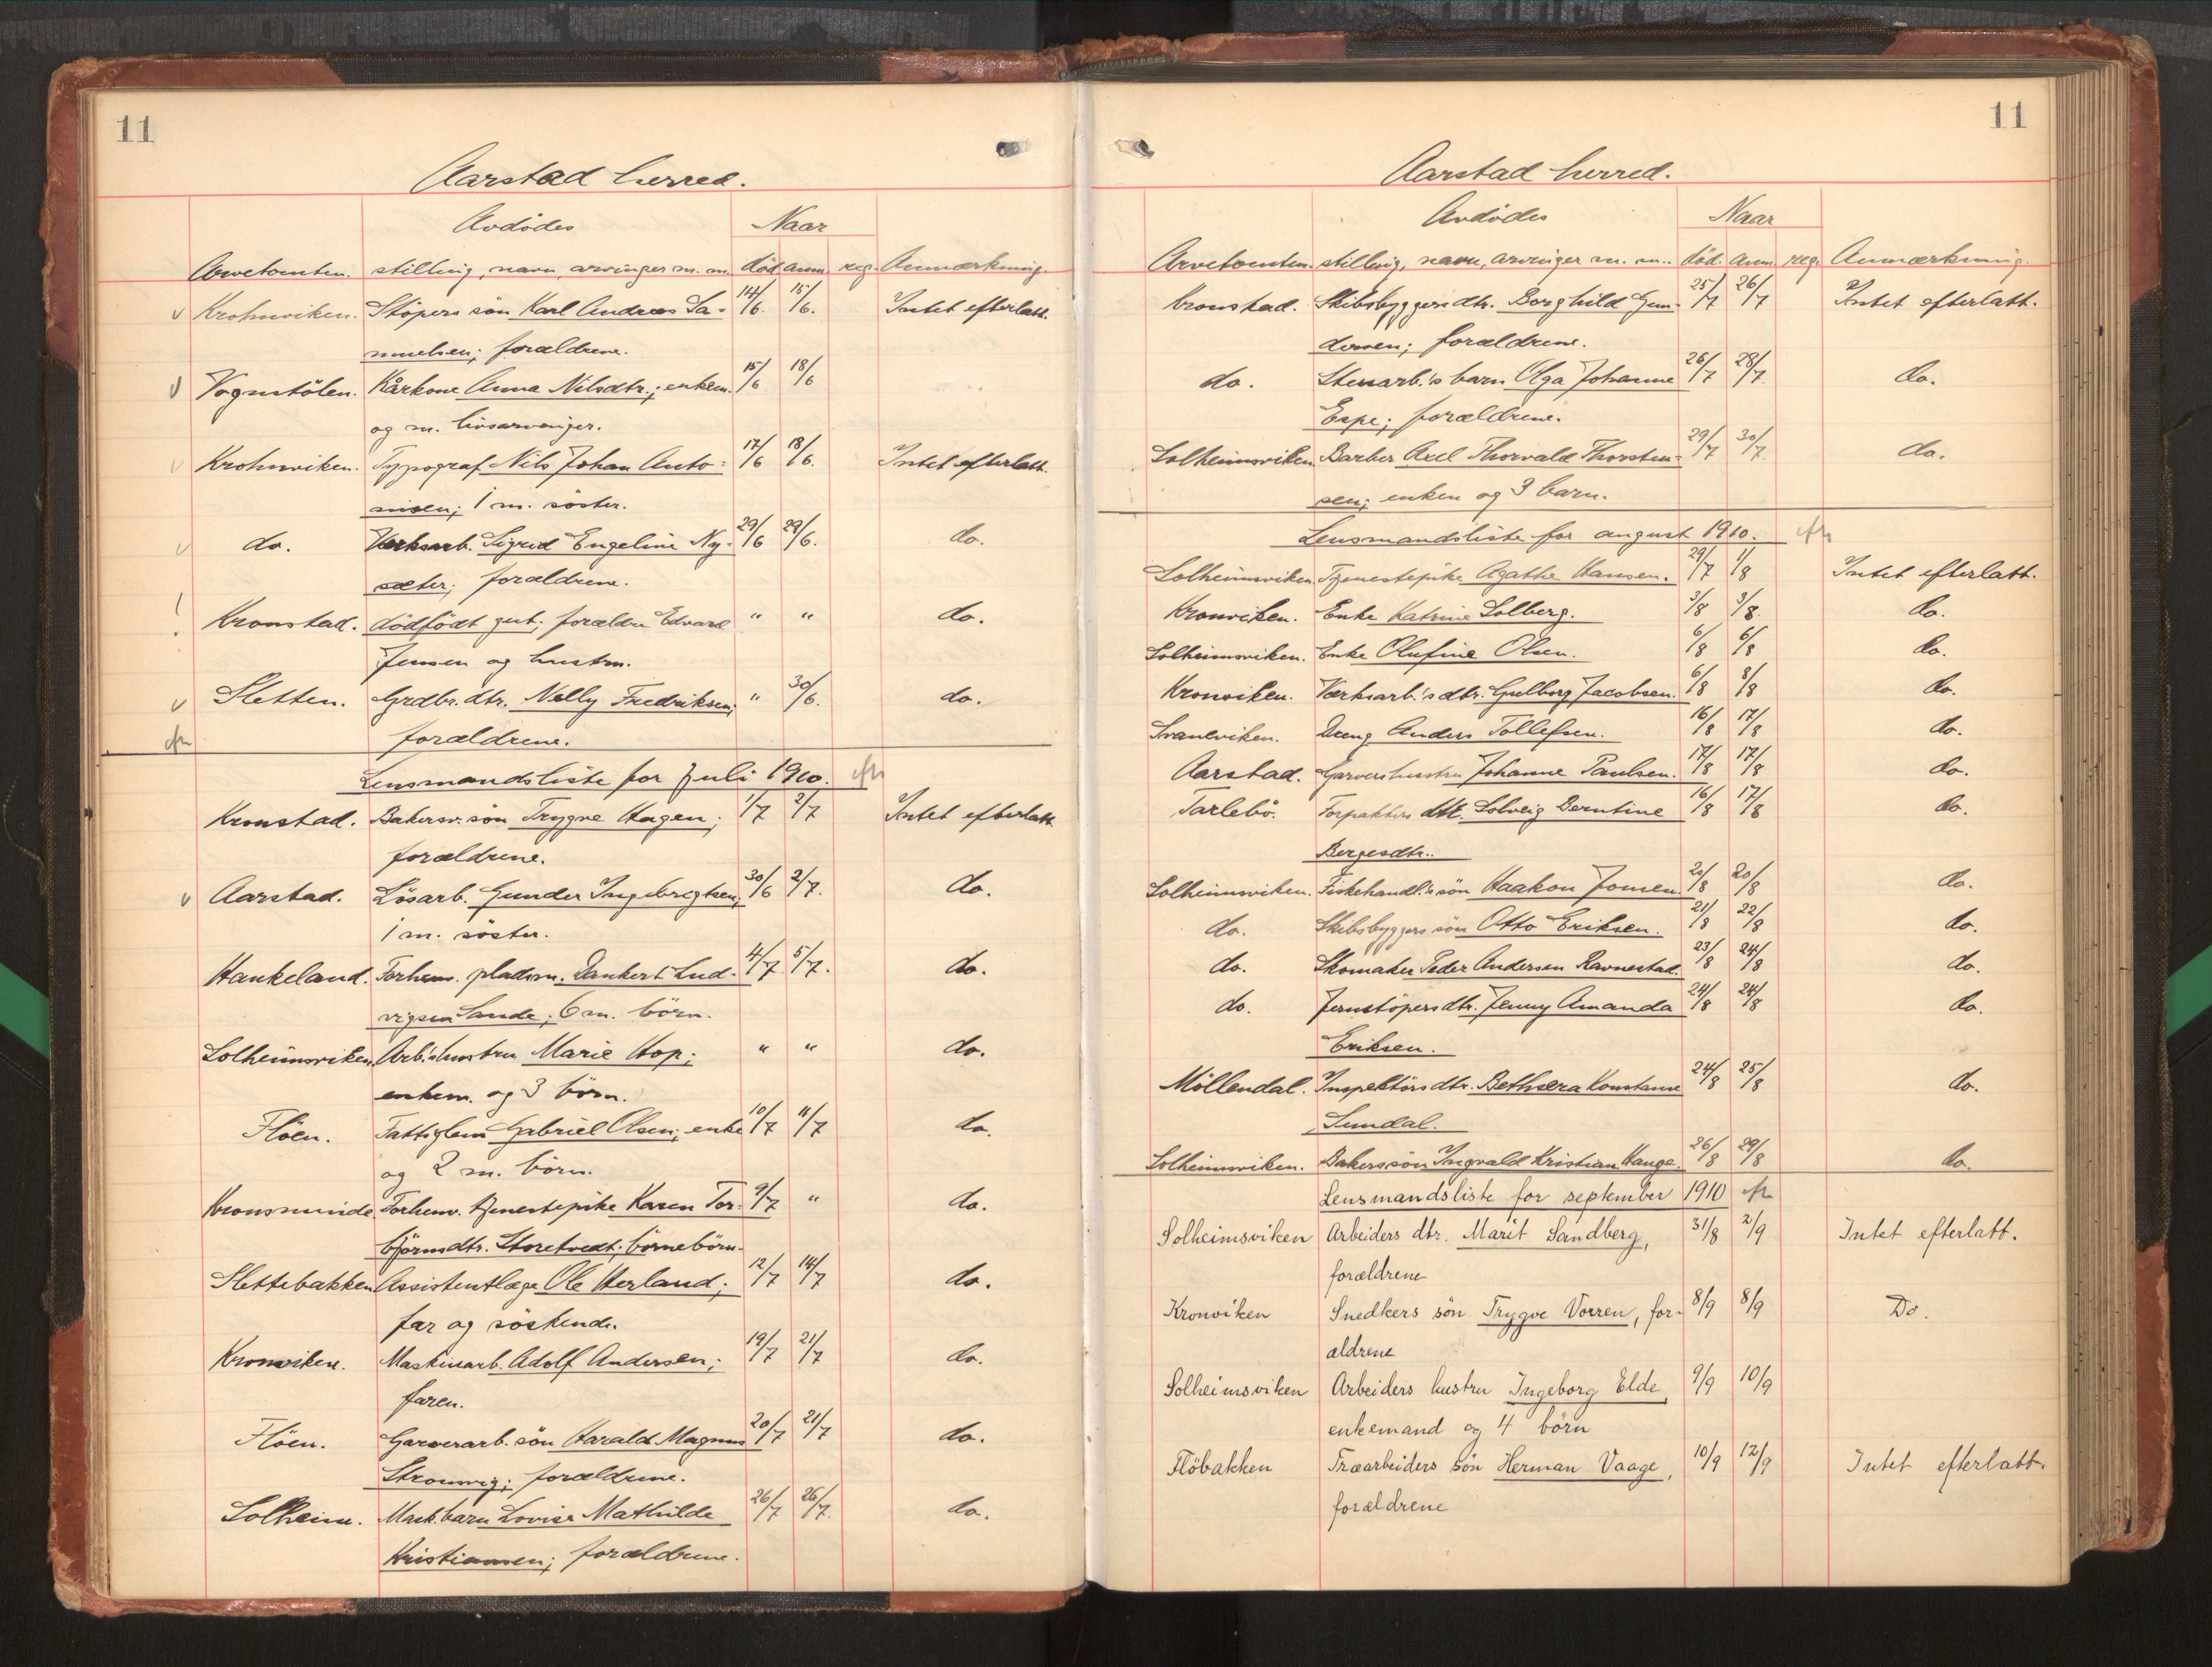 11
Aarstad herred.
Avdödes Naar
Arvetomten. stilling, navn, arvinger m. m. död anm. reg. Anmærkning.
v Krohnviken. Stöpers sön Karl Andreas Sa- 14/6. 15/6. Intet efterlatt.
muelsen; forældrene.
v Vognstölen. Kårkone Anna Nilsdtr.; enkem. 15/6 18/6
og m. livsarvinger.
v Krohnviken. Typograf Nils Johan Anto- 17/6 18/6. Intet efterlatt.
nisen; 1 m. söster.
v do. Værksarb. Sigrid Engeline Ny- 29/6 29/6. do.
sæter; forældrene.
! Kronstad. dödfödt gut; forældre Edvard " " do.
Jensen og hustru.
v Sletten. Grdbr. dtr. Nelly Fredriksen; " 30/6. do.
forældrene.
Lensmandsliste for Juli 1910.
Kronstad. Bakersv. sön Trygve Hagen; 1/7 2/7 Intet efterlatt.
forældrene.
v Aarstad. Lösarb. Gunder Ingebrigtsen; 30/6 2/7. do.
1 m. söster.
Haukeland. Forhenv. pladsm. Dankert Lud- 4/7 5/7. do.
vigsen Sande; 6 m. börn.
Solheimsviken. Arb.s hustru Marie Hop; " " do.
enkem. og 3 börn.
Flöen. Fattiglem Gabriel Olsen; enke 10/7 11/7 do.
og 2 m. börn.
Kronsminde. Forhenv. tjenestepike Karen Tor- 9/7 " do.
björnsdtr. Storetvedt; börnebörn.
Slettebakken Assistentlæge Ole Herland; 12/7 14/7 do.
far og söskende.
Kronviken. Maskinarb. Adolf Andersen; 19/7 21/7 do.
faren.
Flöen. Garverarb. sön Harald Magnus 20/7 21/7 do.
Strömvig; forældrene.
Solheim. Mask. barn Lovise Mathilde 26/7 26/7. do.
Kristiansen; forældrene.
11
Aarstad herred.
Avdödes Naar
Arvetomten. stilling, navn, arvinger m. m. död. anm. reg. Anmærkning.
Kronstad. Skibsbyggers dtr. Borghild Gun- 25/7 26/7 Intet efterlatt.
dersen; forældrene.
do. Stenarb.'s barn Olga Johanne 26/7 28/7. do.
Espe; forældrene.
Solheimsviken Barber Axel Thorvald Thorsten- 29/7 30/7. do.
sen; enken og 3 barn.
Lensmandsliste for august 1910.
Solheimsviken. Tjenestepike Agathe Hansen. 29/7 1/8 Intet efterlatt.
Kronviken. Enke Katrine Solberg. 3/8 3/8. do.
Solheimsviken. Enke Olufine Olsen. 6/8 6/8 do.
Kronviken. Værksarb.'s dtr. Gulborg Jacobsen. 6/8 8/8 do.
Svaneviken. Dreng Anders Tollefsen. 16/8 17/8 do.
Aarstad. Garvers hustru Johanne Paulsen. 17/8 17/8 do.
Tarlebö. Forpakters dtr. Solveig Berntine 16/8 17/8 do.
Bergesdtr.
Solheimsviken. Fiskehandl.'s sön Haakon Jonsen 20/8 20/8 do.
do. Skibsbyggers sön Otto Eriksen. 21/8 22/8 do.
do. Skomaker Peder Andersen Ravnestad. 23/8 24/8 do.
do. Jernstöpers dtr. Jenny Amanda 24/8 24/8 do.
Eriksen.
Möllendal. Inspektörs dtr. Bethsera Konstanse 24/8 25/8 do.
Sundal.
Solheimsviken. Bakers sön Ingvald Kristian Hauge. 26/8 29/8 do.
Lensmandsliste for september 1910
Solheimsviken Arbeiders dtr. Marit Sandberg, 31/8 2/9 Intet efterlatt.
forældrene
Kronviken Snedkers sön Trygve Vorren, for- 8/9 8/9 Do.
ældrene
Solheimsviken Arbeiders hustru Ingeborg Elde, 9/9 10/9
enkemand og 4 börn
Flöbakken Træarbeiders sön Herman Vaage, 10/9 12/9 Intet efterlatt.
forældrene